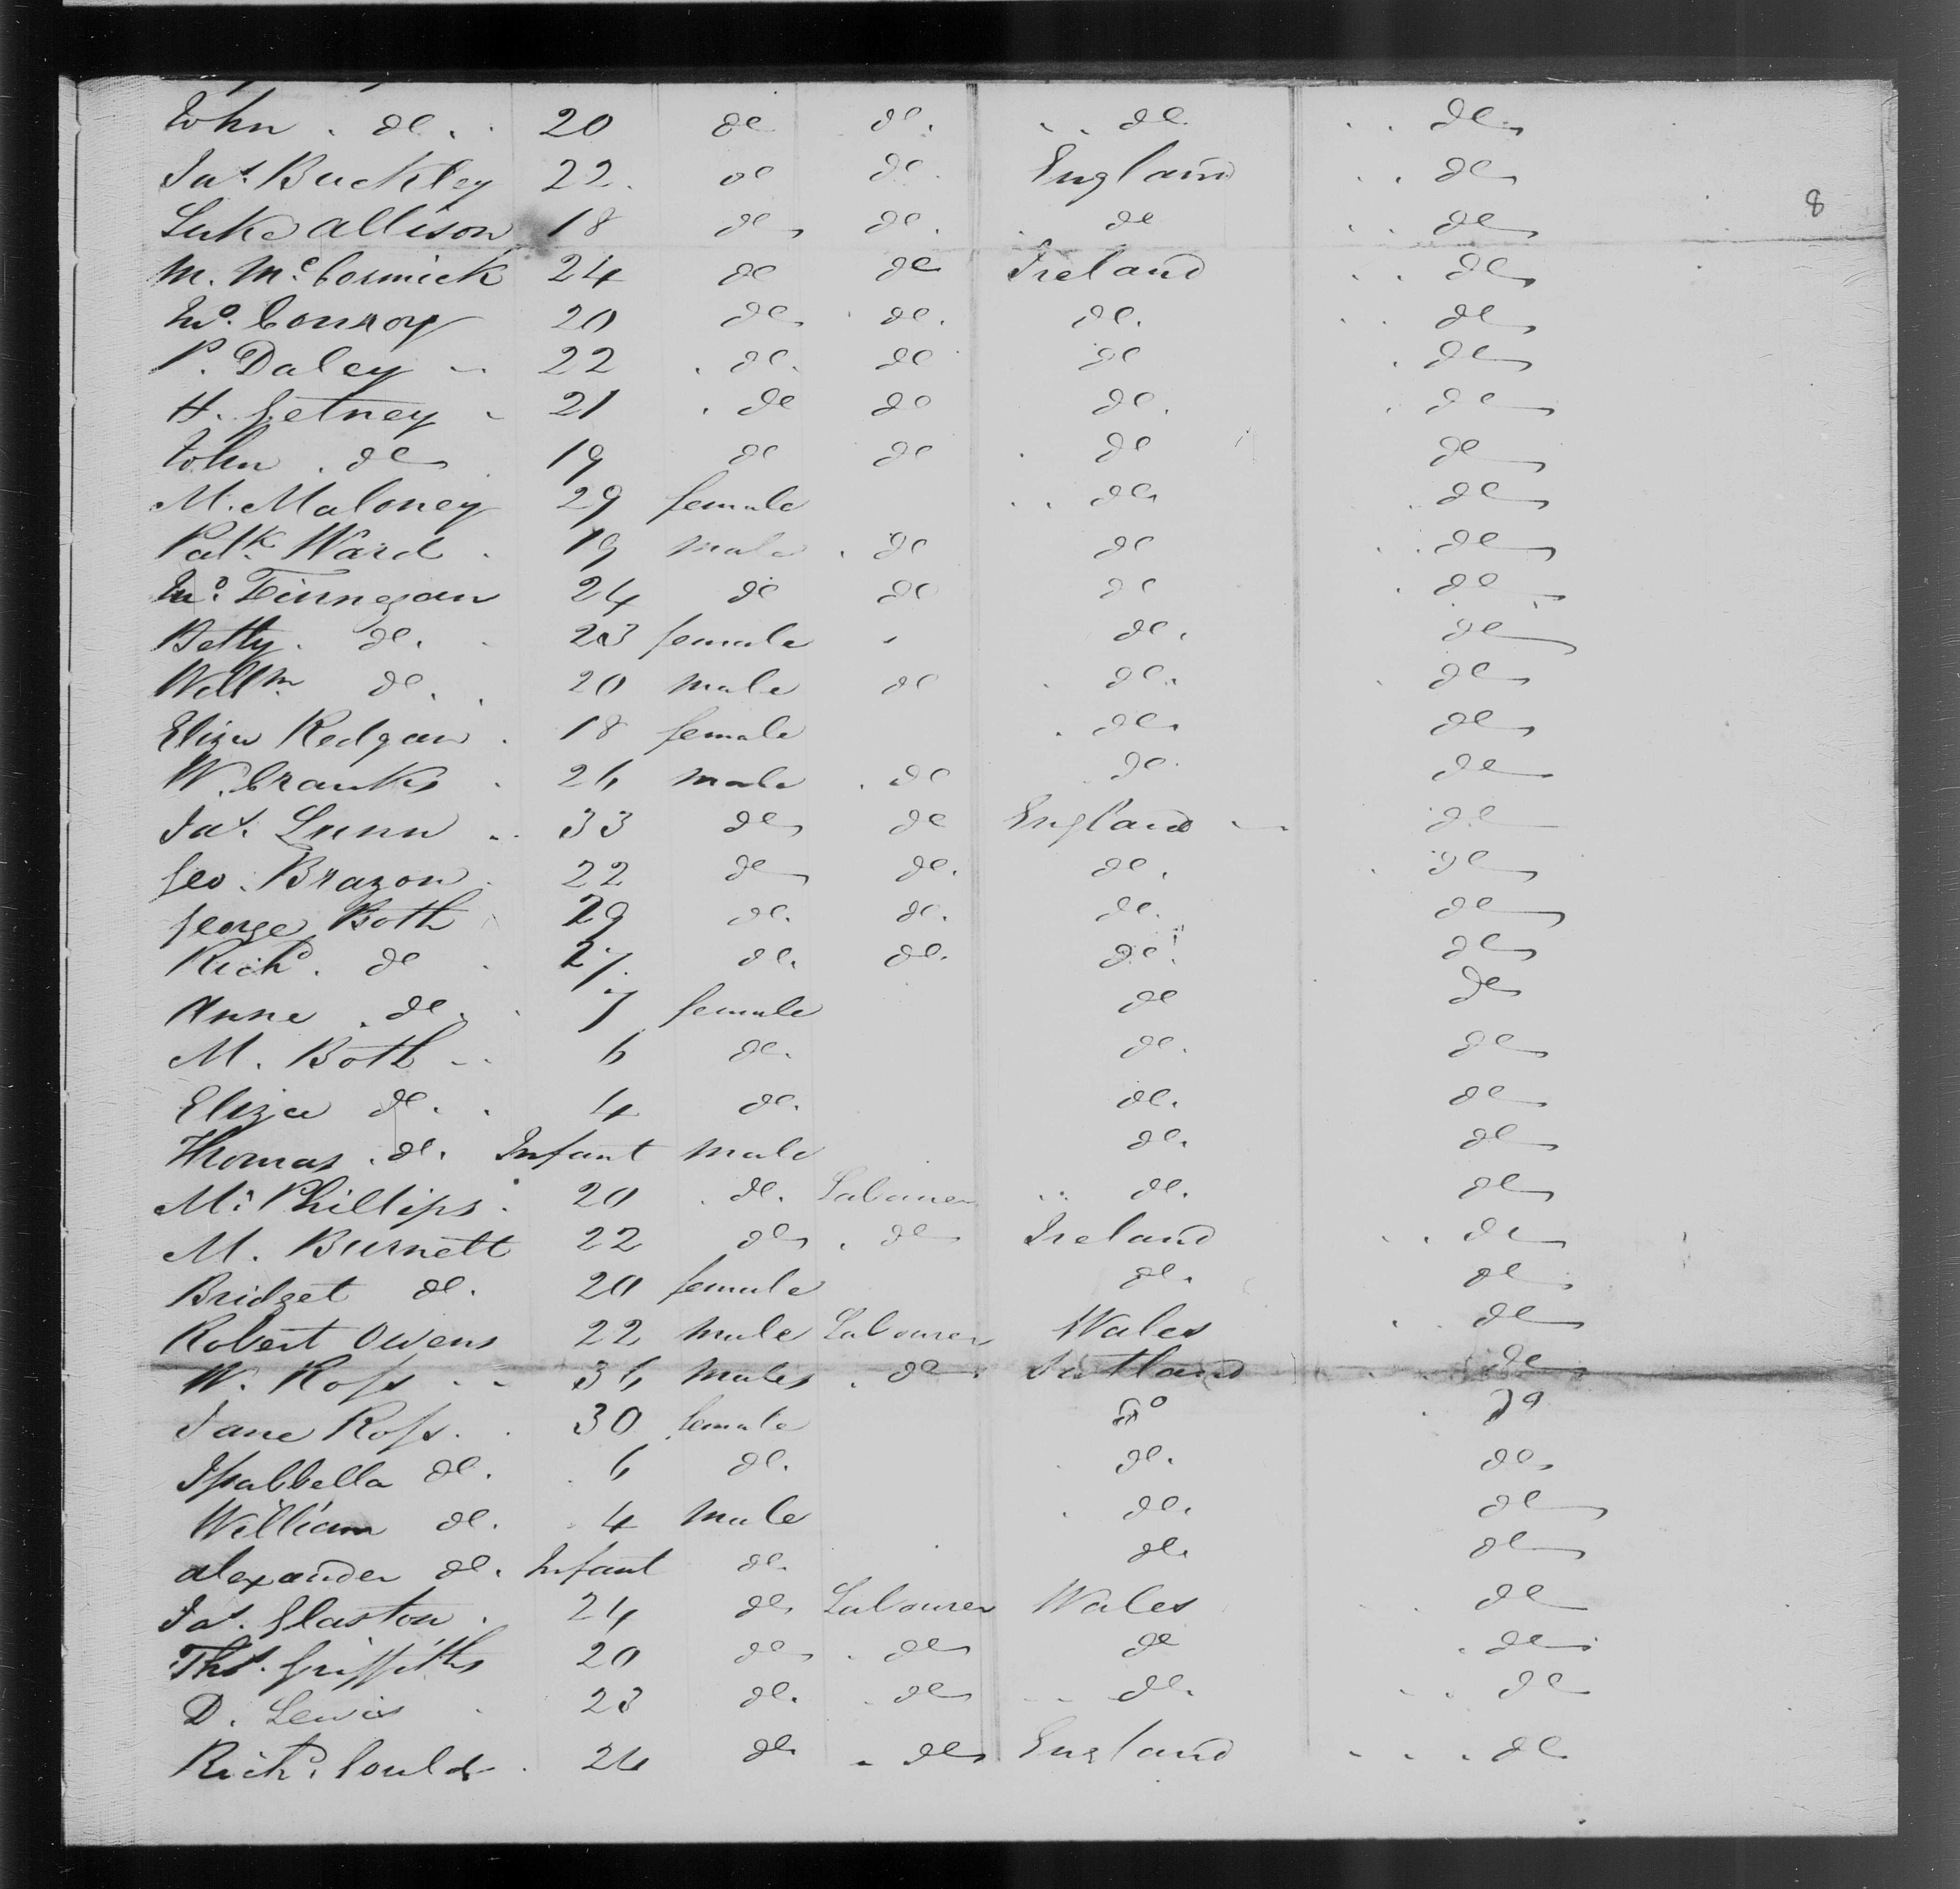 John do 20 do do do do
Jas. Buckley 22 do do England do
8
Luke Allison 18 do do do do
M. McCormick 24 do do Ireland do
Jno. Conroy 20 do do do do
P. Daley 22 do do do do
H. Getney 21 do do do do
John do 19 do do do do
M. Maloney 29 female do do
Patk. Ward 19 male do do do
Jno. Finnegan 24 do do do do
Betty do 23 female do do
Willm. do 20 male do do do
Eliza Redgan 18 female do do
W. Cranks 26 male do do do
Jas. Lunn 33 do do England do
Geo. Brazon 22 do do do do
George Both 29 do do do do
Richd. do 27 do do do do
Anne do 7 female do do
M. Both 6 do do do
Eliza do 4 do do do
Thomas do Infant male do do
M. Phillips 20 do Labourer do do
M. Burnett 22 do do Ireland do
Bridget do 20 female do do
Robert Owens 22 male Labourer Wales do
W. Ross 36 males do Scotland do
Jane Ross 30 female do do
Issabbella do 6 do do do
William do 4 male do do
Alexander do Infant do do do
Jas. Glaston 24 do Labourer Wales do
Thos. Griffiths 20 do do do do
D. Lewis 23 do do do do
Richd. Could 24 do do England do